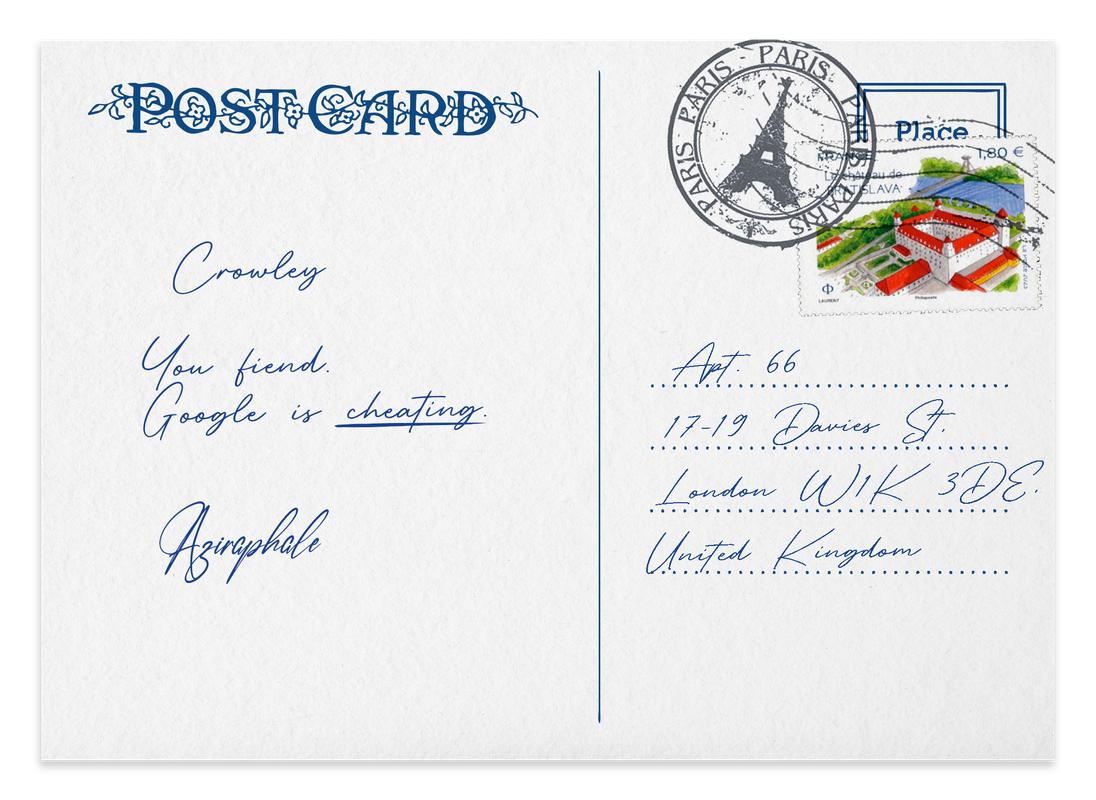 POST CARD
Crowley
You fiend.
Google is cheating.
Aziraphale
PARIS · PARIS · PARIS · PARIS · PARIS
Place
FRANCE
1,80 €
Le château de
BRATISLAVA
LA POSTE 2023
LAURENT
Philaposte
Apt. 66
17-19 Davies St.
London W1K 3DE.
United Kingdom